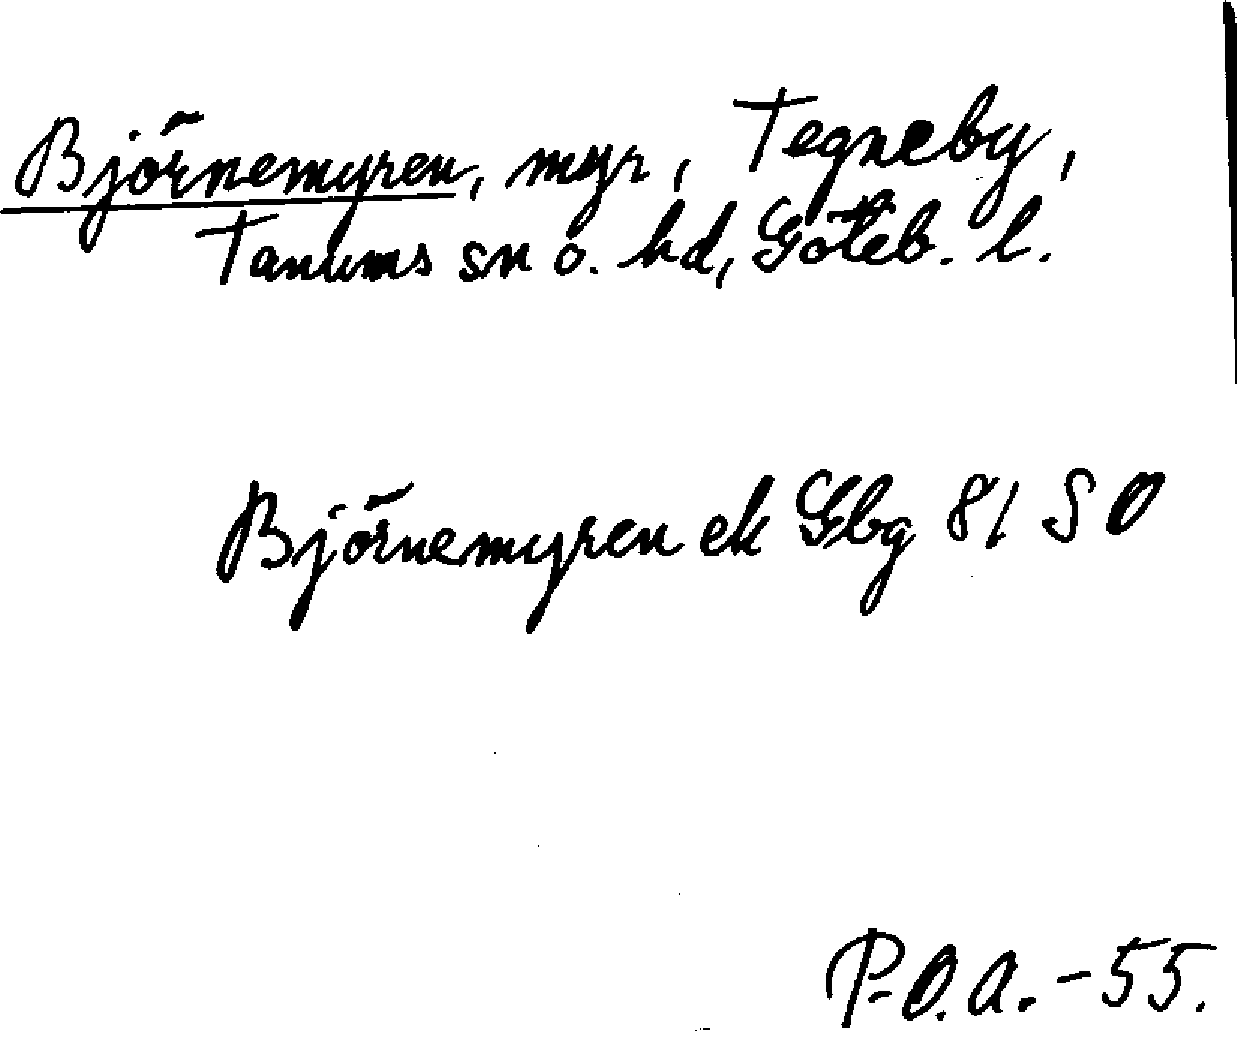 Björnemyren, myr, Tegneby,
Tanums sn o. hd, Göteb. l.
Björnemyren ek Gbg 81 SO
P-O.A. -55.